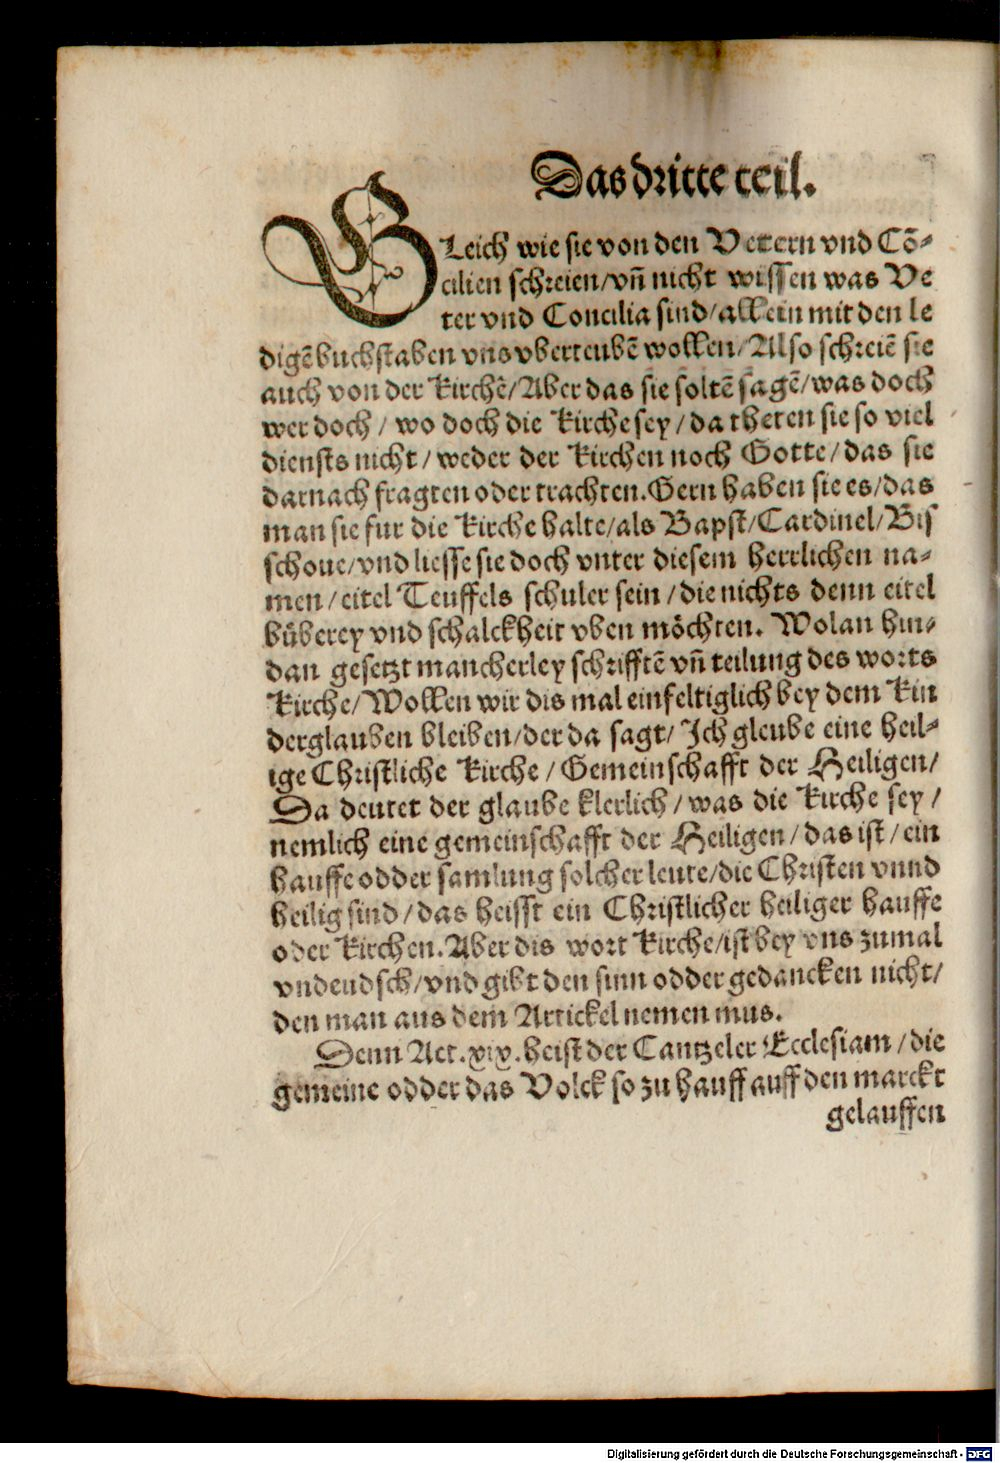 Das dritte teil.
GLeich wie sie von den Vetern vnd Cō-
cilien schreien/vn̄ nicht wissen was Ve
ter vnd Concilia sind/allein mit den le
digē buchstaben vns vberteubē wollen/Also schreiē sie
auch von der Kirchē/Aber das sie soltē sagē/was doch
wer doch/wo doch die Kirche sey/da theten sie so viel
diensts nicht/weder der Kirchen noch Gotte/das sie
darnach fragten oder trachten. Gern haben sie es/das
man sie fur die Kirche halte/als Bapst/Cardinel/Bis
schoue/vnd liesse sie doch vnter diesem herrlichen na-
men/eitel Teuffels schuler sein/die nichts denn eitel
büberey vnd schalckheit vben möchten. Wolan hin-
dan gesetzt mancherley schrifftē vn̄ teilung des worts
Kirche/Wollen wir dis mal einfeltiglich bey dem Kin
derglauben bleiben/der da sagt/Ich gleube eine heil-
ige Christliche Kirche/Gemeinschafft der Heiligen/
Da deutet der glaube klerlich/was die Kirche sey/
nemlich eine gemeinschafft der Heiligen/das ist/ein
hauffe odder samlung solcher leute/die Christen vnnd
heilig sind/das heisst ein Christlicher heiliger hauffe
oder Kirchen. Aber dis wort Kirche/ist bey vns zumal
vndeudsch/vnd gibt den sinn odder gedancken nicht/
den man aus dem Artickel nemen mus.
Denn Act. xix. heist der Cantzeler Ecclesiam/die
gemeine odder das Volck so zu hauff auff den marckt
gelauffen
Digitalisierung gefördert durch die Deutsche Forschungsgemeinschaft - DFG